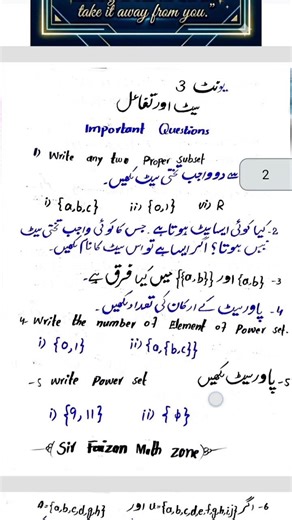 take it away from you."
یونٹ 3
سیٹ اور تفاعل
Important Questions
1) Write any two Proper Subset
سے دو واجب تحتی سیٹ لکھیں۔
2
i) {a,b,c} ii) {0,1} vi) R
2- کیا کوئی ایسا سیٹ ہوتا ہے۔ جس کا کوئی واجب تحتی سیٹ
نہیں ہوتا؟ اگر ایسا ہے تو اس سیٹ کا نام لکھیں۔
3- {a,b} اور {{a,b}} میں کیا فرق ہے۔
4- پاور سیٹ کے ارکان کی تعداد لکھیں۔
4. Write the number of Element of Power set.
i) {0,1} ii) {a,{b,c}}
-5 Write Power set 5- پاور سیٹ لکھیں
i) {9,11} ii) {ϕ}
Sir Faizan Math zone
6- اگر U={a,b,c,d,e,f,g,h,i,j} اور A={a,b,c,d,g,h}